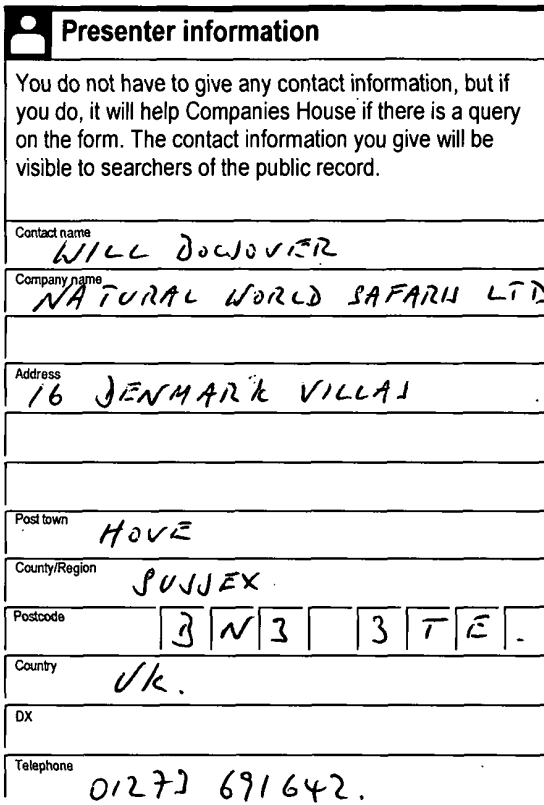 Presenter information
You do not have to give any contact information, but if
you do, it will help Companies House if there is a query
on the form. The contact information you give will be
visible to searchers of the public record.
Contact name
WILL BOLSOVER
Company name
NATURAL WORLD SAFARIS LTD
Address
16 DENMARK VILLAS
Post town
HOVE
County/Region
SUSSEX
Postcode
BN3 3TE.
Country
UK.
DX
Telephone
01273 691642.